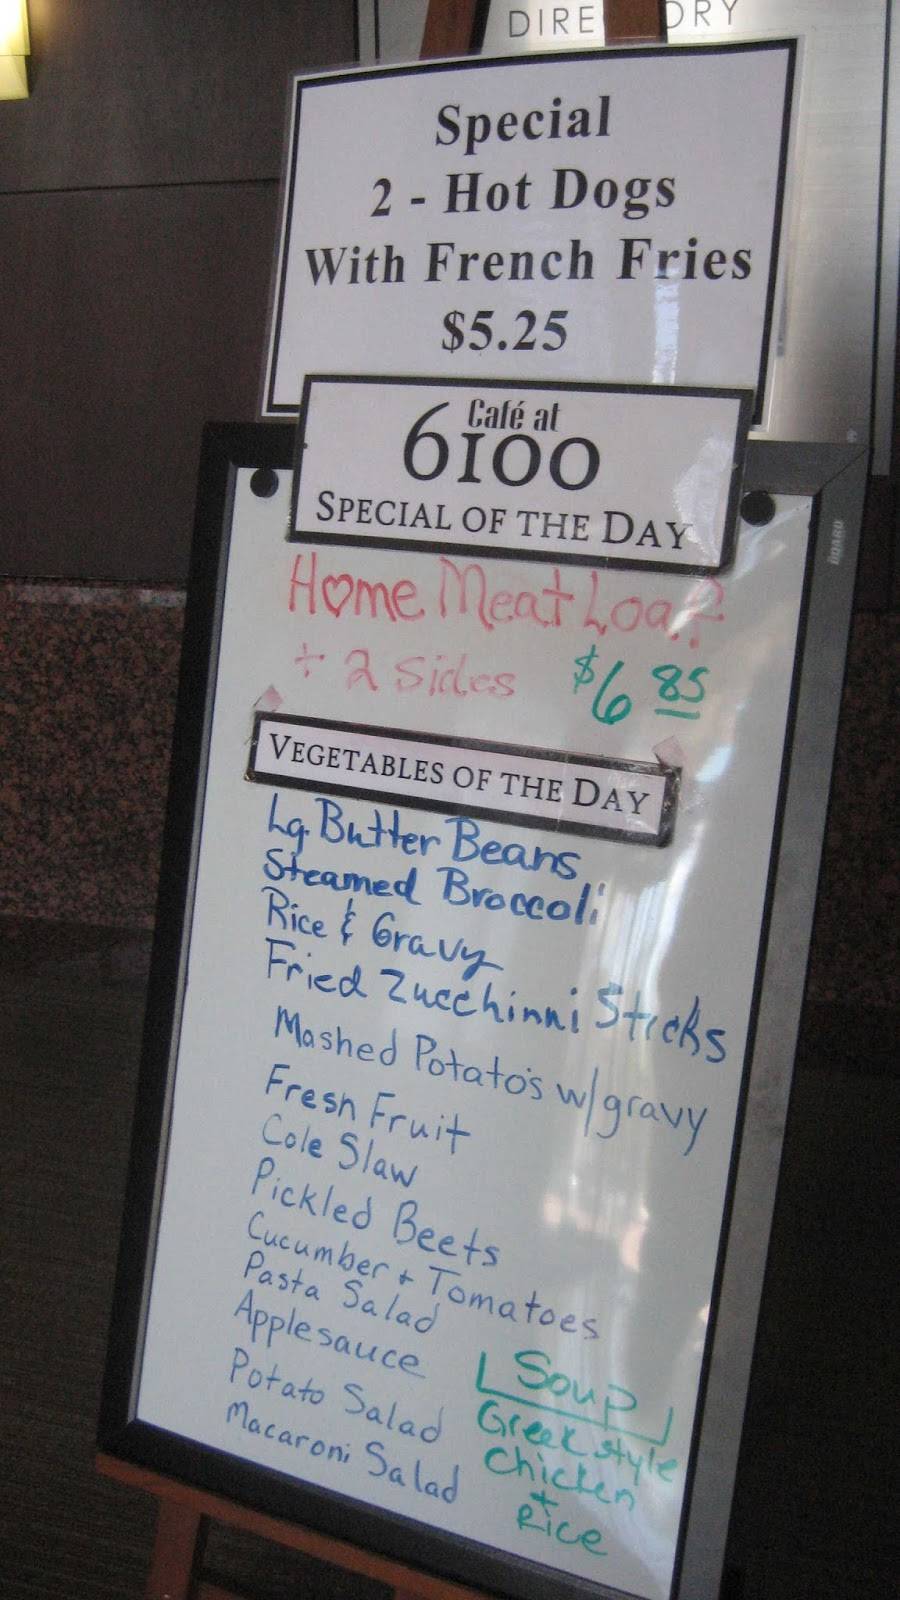 DIRE ORY
Special
2 - Hot Dogs
With French Fries
$5.25
Café at
6100
SPECIAL OF THE DAY
Home Meat Loaf
+ 2 Sides $6 85
VEGETABLES OF THE DAY
Lg. Butter Beans
Steamed Broccoli
Rice & Gravy
Fried Zucchinni Sticks
Mashed Potato's w/gravy
Fresh Fruit
Cole Slaw
Pickled Beets
Cucumber + Tomatoes
Pasta Salad
Applesauce
Potato Salad
Macaroni Salad
Soup
Greek style
Chicken
+
Rice
BOARD